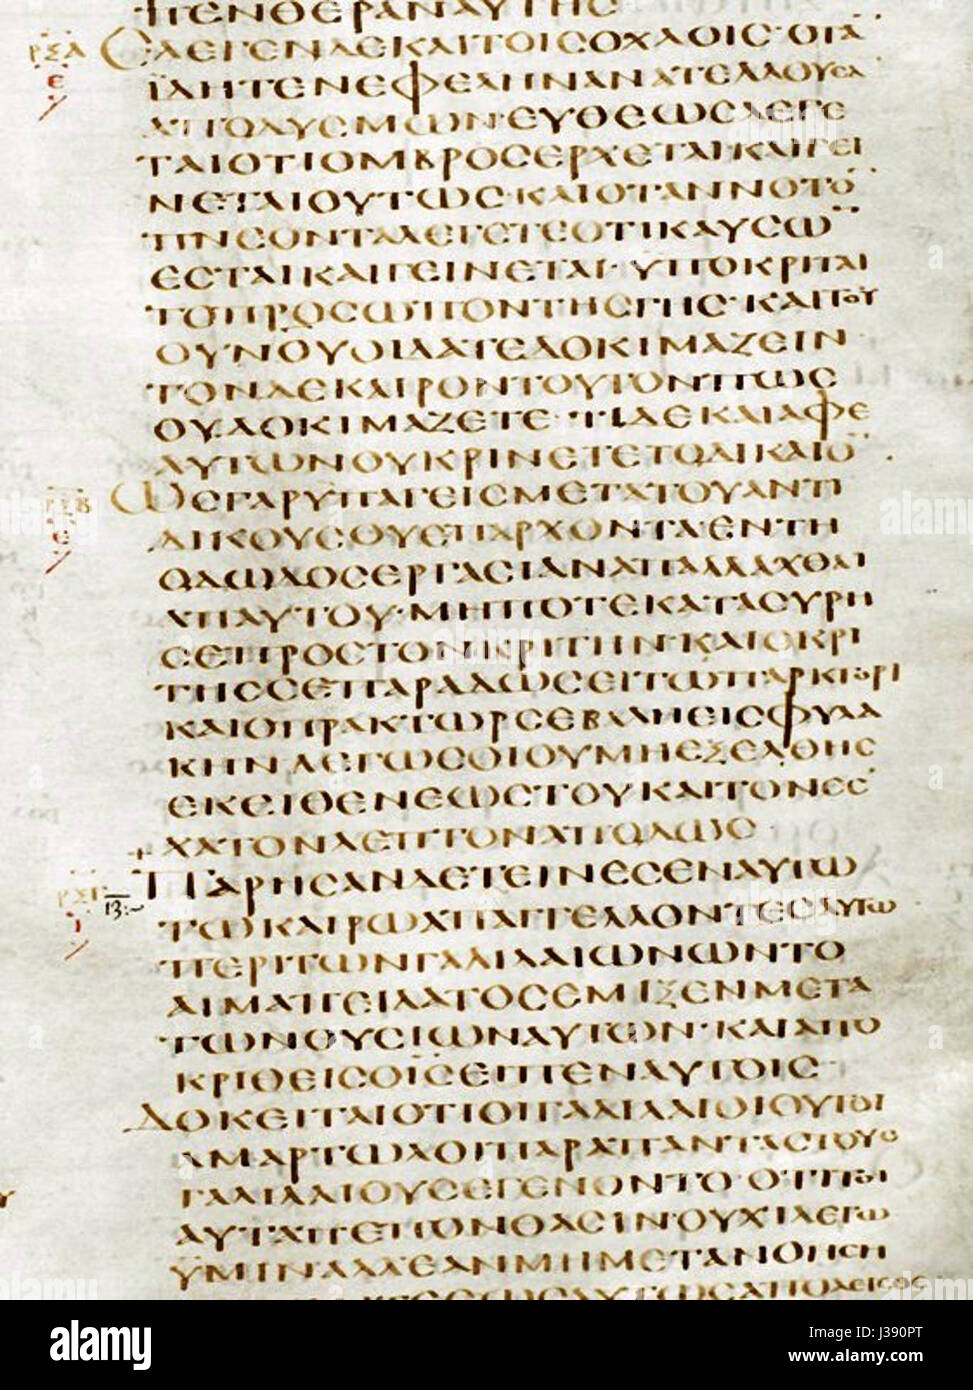 ΠΕΝΘΕΡΑΝΑΥΤΗΣ
ΡΞΑ ΕΛΕΓΕΝΔΕΚΑΙΤΟΙΣΟΧΛΟΙΣ·ΟΤΑ
Ε ΪΔΗΤΕΝΕΦΕΛΗΝΑΝΑΤΕΛΛΟΥΣΑ
ΑΠΟΔΥΣΜΩΝ·ΕΥΘΕΩΣΛΕΓΕ
ΤΑΙΟΤΙΟΜΒΡΟΣΕΡΧΕΤΑΙ·ΚΑΙΓΕΙ
ΝΕΤΑΙΟΥΤΩΣ·ΚΑΙΟΤΑΝΝΟΤΟ
ΠΝΕΟΝΤΑΛΕΓΕΤΕΟΤΙΚΑΥΣΩ
ΕΣΤΑΙΚΑΙΓΕΙΝΕΤΑΙ·ΥΠΟΚΡΙΤΑΙ
ΤΟΠΡΟΣΩΠΟΝΤΗΣΓΗΣ·ΚΑΙΤΟΥ
ΟΥΝΟΥΟΙΔΑΤΕΔΟΚΙΜΑΖΕΙΝ
ΤΟΝΔΕΚΑΙΡΟΝΤΟΥΤΟΝΠΩΣ
ΟΥΔΟΚΙΜΑΖΕΤΕ·ΤΙΔΕΚΑΙΑΦΕ
ΑΥΤΩΝΟΥΚΡΙΝΕΤΕΤΟΔΙΚΑΙΟ
ΡΞΒ ΩΣΓΑΡΥΠΑΓΕΙΣΜΕΤΑΤΟΥΑΝΤΙ
Ε ΔΙΚΟΥΣΟΥΕΠΑΡΧΟΝΤΑΕΝΤΗ
ΟΔΩΔΟΣΕΡΓΑΣΙΑΝΑΠΑΛΛΑΧΘΑΙ
ΑΠΑΥΤΟΥ·ΜΗΠΟΤΕΚΑΤΑΣΥΡΗ
ΣΕΠΡΟΣΤΟΝΚΡΙΤΗΝ·ΚΑΙΟΚΡΙ
ΤΗΣΣΕΠΑΡΑΔΩΣΕΙΤΩΠΡΑΚΤΟΡΙ
ΚΑΙΟΠΡΑΚΤΩΡΣΕΒΑΛΗΕΙΣΦΥΛΑ
ΚΗΝΛΕΓΩΣΟΙΟΥΜΗΕΞΕΛΘΗΣ
ΕΚΕΙΘΕΝΕΩΣΤΟΥΚΑΙΤΟΝΕΣ
ΧΑΤΟΝΛΕΠΤΟΝΑΠΟΔΩΣ
ΡΞΓ 13 ΠΑΡΗΣΑΝΔΕΤΕΙΝΕΣΕΝΑΥΤΩ
Ι ΤΩΚΑΙΡΩΑΠΑΓΓΕΛΛΟΝΤΕΣΑΥΤΩ
ΠΕΡΙΤΩΝΓΑΛΙΛΑΙΩΝΩΝΤΟ
ΑΙΜΑΠΕΙΛΑΤΟΣΕΜΙΞΕΝΜΕΤΑ
ΤΩΝΘΥΣΙΩΝΑΥΤΩΝ·ΚΑΙΑΠΟ
ΚΡΙΘΕΙΣΟΙΣΕΙΠΕΝΑΥΤΟΙΣ
ΔΟΚΕΙΤΑΙΟΤΙΟΙΓΑΛΙΛΑΙΟΙΟΥΤΟΙ
ΑΜΑΡΤΩΛΟΙΠΑΡΑΠΑΝΤΑΣΤΟΥΣ
ΓΑΛΙΛΑΙΟΥΣΕΓΕΝΟΝΤΟ·ΟΤΙΤΟΙ
ΑΥΤΑΠΕΠΟΝΘΑΣΙΝ·ΟΥΧΙΛΕΓΩ
ΫΜΙΝΑΛΛΕΑΝΜΗΜΕΤΑΝΟΗΣΗ
alamy
J390PT
www.alamy.com